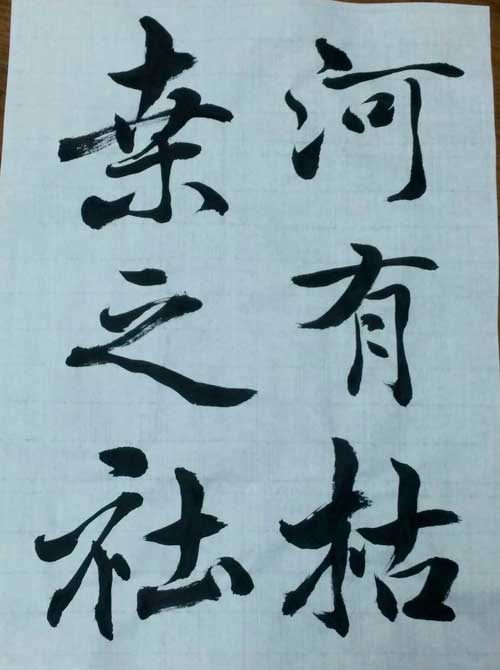 河有枯
桒之社